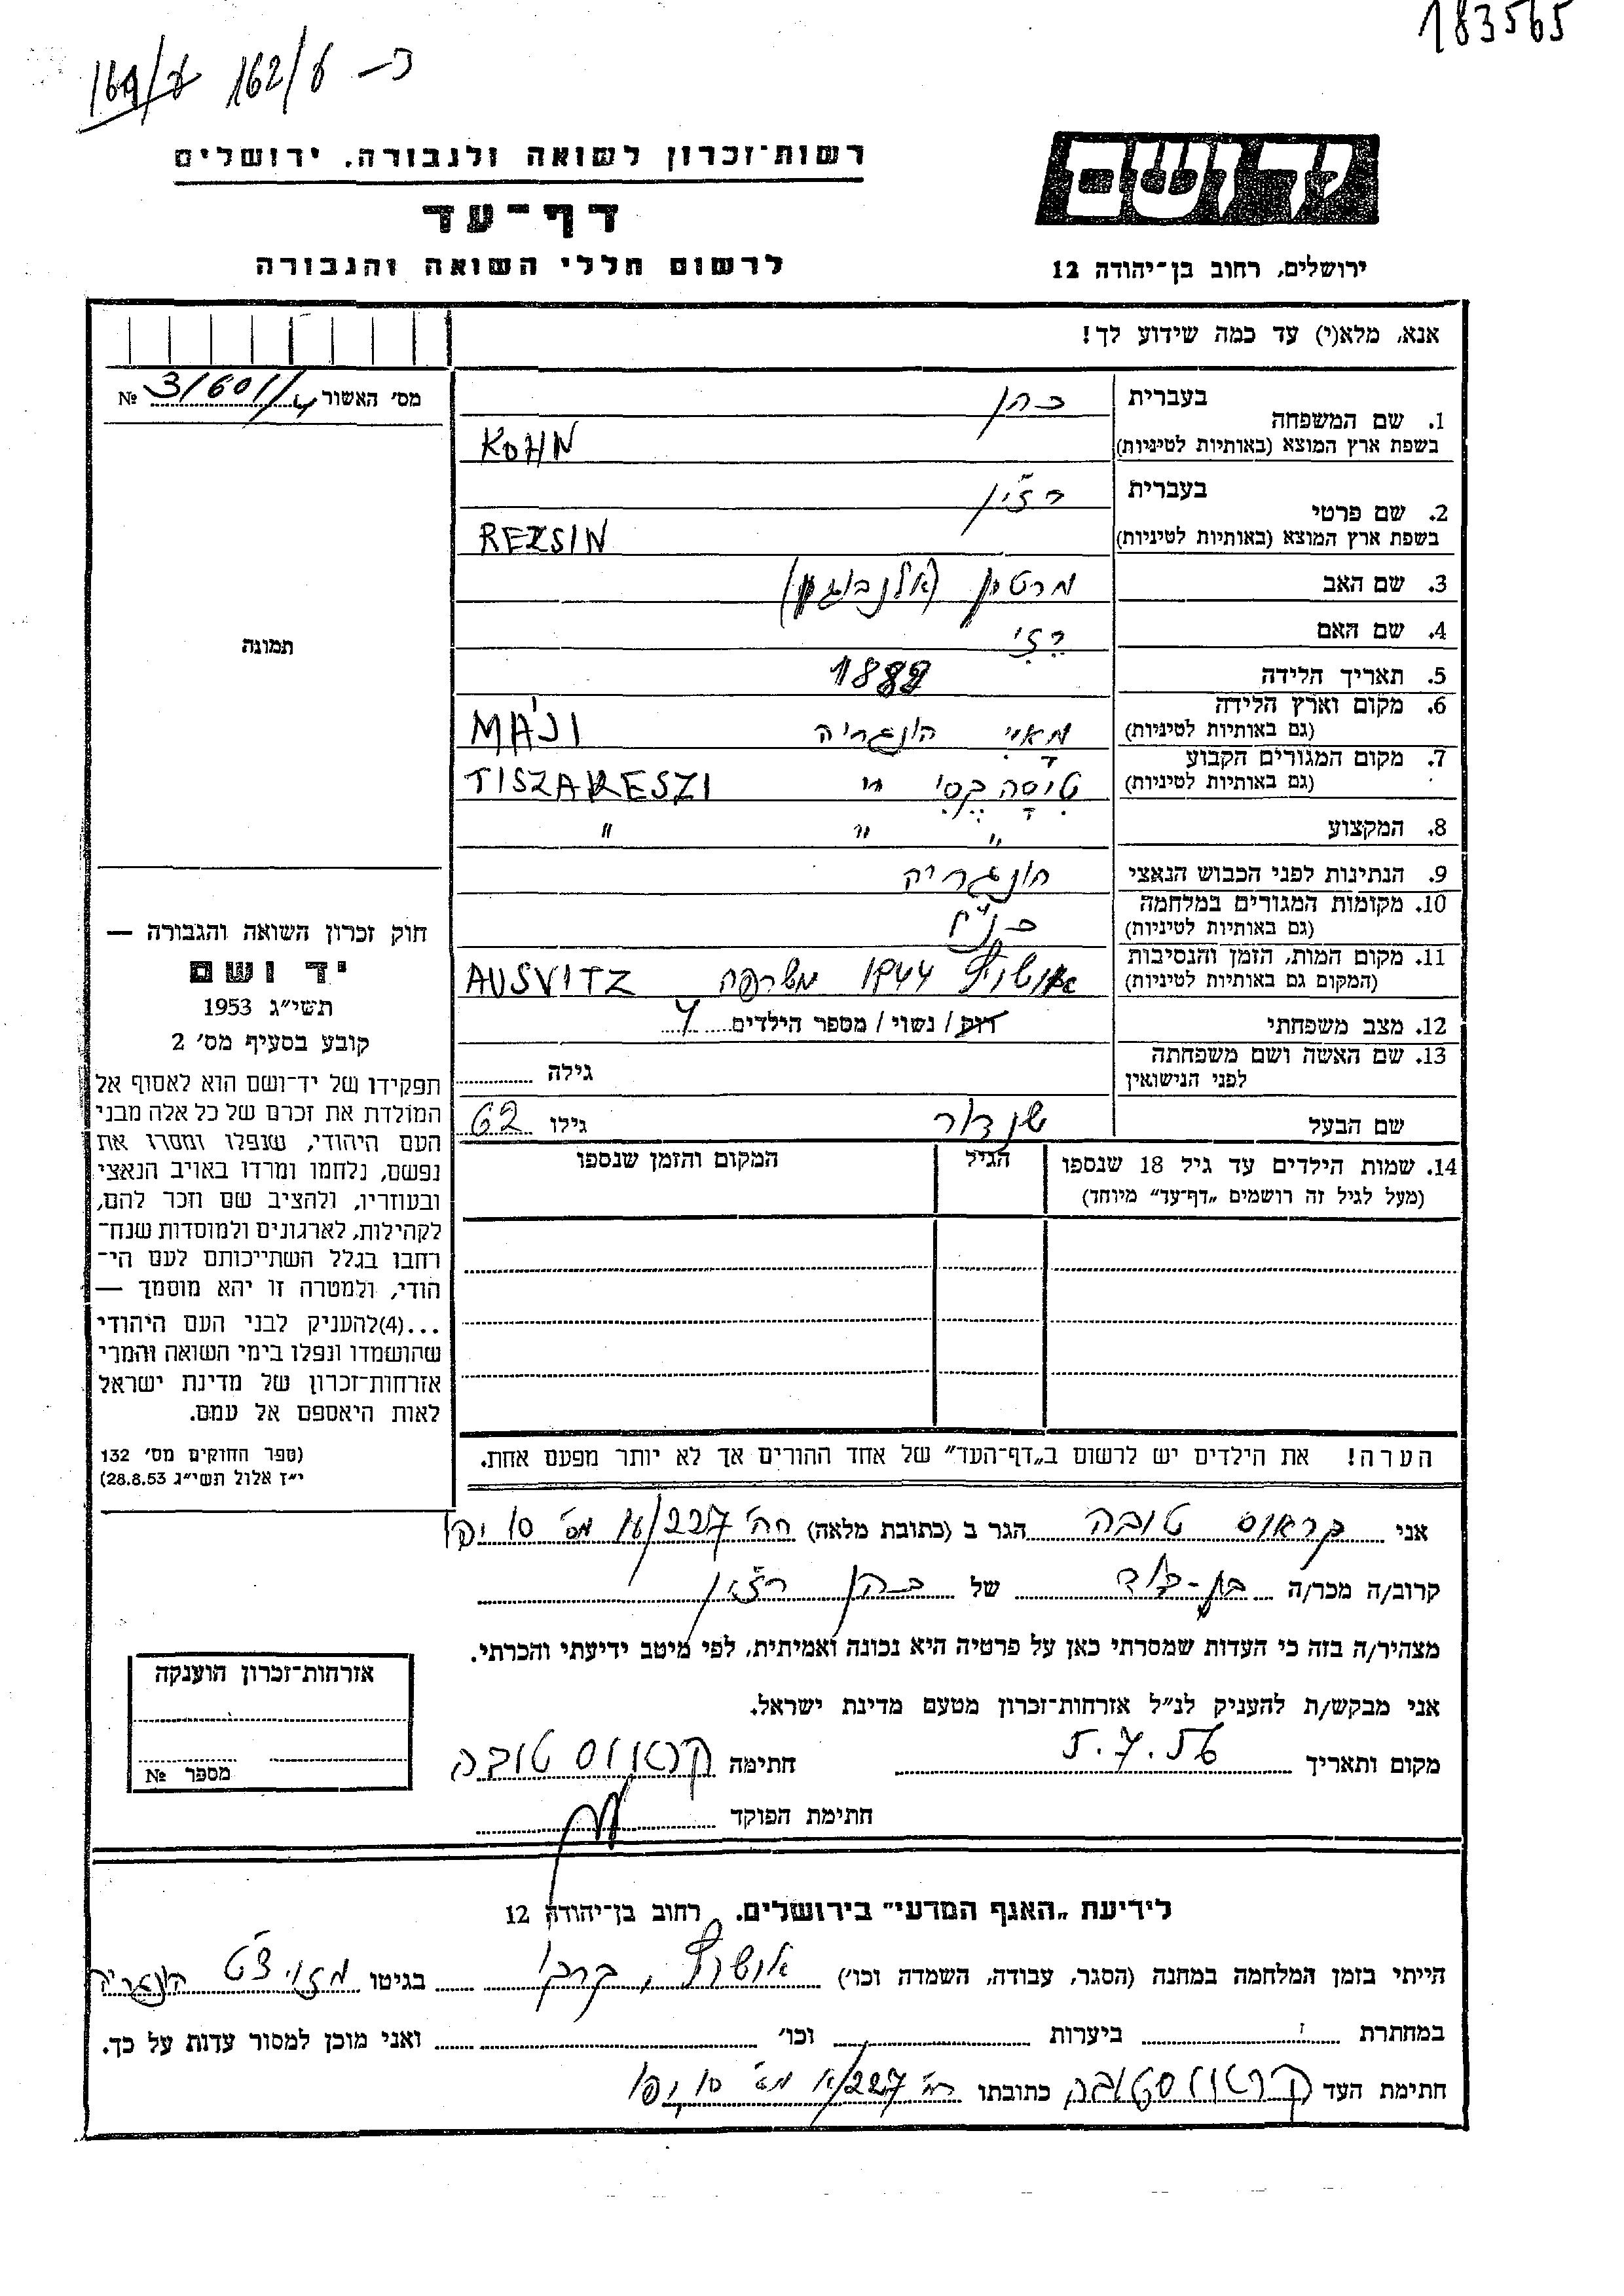 183565
169/ע 162/ע – כ
רשות־זכרון לשואה ולגבורה. ירושלים
דף־עד
לרשום חללי השואה והגבורה
יד ושם
ירושלים, רחוב בן־יהודה 12
אנא, מלא(י) עד כמה שידוע לך!
מס׳ האשור 3/601/ № 
תמונה
חוק זכרון השואה והגבורה —
יד ושם
תשי״ג 1953
קובע בסעיף מס׳ 2
תפקידו של יד־ושם הוא לאסוף אל
המולדת את זכרם של כל אלה מבני
העם היהודי, שנפלו ומסרו את
נפשם, נלחמו ומרדו באויב הנאצי
ובעוזריו, ולהציב שם וזכר להם,
לקהילות, לארגונים ולמוסדות שנח־
רחבו בגלל השתייכותם לעם הי־
הודי, ולמטרה זו יהא מוסמך —
...(4)להעניק לבני העם היהודי
שהושמדו ונפלו בימי השואה והמרי
אזרחות־זכרון של מדינת ישראל
לאות היאספם אל עמם.
(ספר החוקים מס׳ 132
י״ז אלול תשי״ג 28.8.53)
1. שם המשפחה בעברית כהן
בשפת ארץ המוצא (באותיות לטיניות) KOHN
2. שם פרטי בעברית רז׳ין
בשפת ארץ המוצא (באותיות לטיניות) REZSIN
3. שם האב מרטין
4. שם האם רזי
5. תאריך הלידה 1882
6. מקום וארץ הלידה מאיי הונגריה MÁJI
(גם באותיות לטיניות)
7. מקום המגורים הקבוע טיסה קסי ״ TISZAKESZI
(גם באותיות לטיניות)
8. המקצוע ״ ״ ״
9. הנתינות לפני הכבוש הנאצי הונגריה
10. מקומות המגורים במלחמה כנ״ל
(גם באותיות לטיניות)
11. מקום המות, הזמן והנסיבות אושויץ 1944 משרפה AUSVITZ
(המקום גם באותיות לטיניות)
12. מצב משפחתי רווק / נשוי / מספר הילדים 4
13. שם האשה ושם משפחתה
לפני הנישואין גילה
שם הבעל שנדור גילו 62
14. שמות הילדים עד גיל 18 שנספו הגיל המקום והזמן שנספו
(מעל לגיל זה רושמים „דף־עד״ מיוחד)
הערה! את הילדים יש לרשום ב„דף־העד״ של אחד ההורים אך לא יותר מפעם אחת.
אני קראוס טובה הגר ב (כתובת מלאה) רח׳ 227/ מס׳ 10 יפו
קרוב/ה מכר/ה של כהן רז׳ין
מצהיר/ה בזה כי העדות שמסרתי כאן על פרטיה היא נכונה ואמיתית, לפי מיטב ידיעתי והכרתי.
אני מבקש/ת להעניק לנ״ל אזרחות־זכרון מטעם מדינת ישראל.
מקום ותאריך 5.7.56 חתימה קראוס טובה
חתימת הפוקד
אזרחות־זכרון הוענקה
מספר №
לידיעת „האגף המדעי״ בירושלים. רחוב בן־יהודה 12
הייתי בזמן המלחמה במחנה (הסגר, עבודה, השמדה וכו׳) אושויץ, בגיטו הונגריה
במחתרת ביערות וכו׳ ואני מוכן למסור עדות על כך.
חתימת העד קראוס טובה כתובתו רח׳ 227/ מס׳ 10 יפו